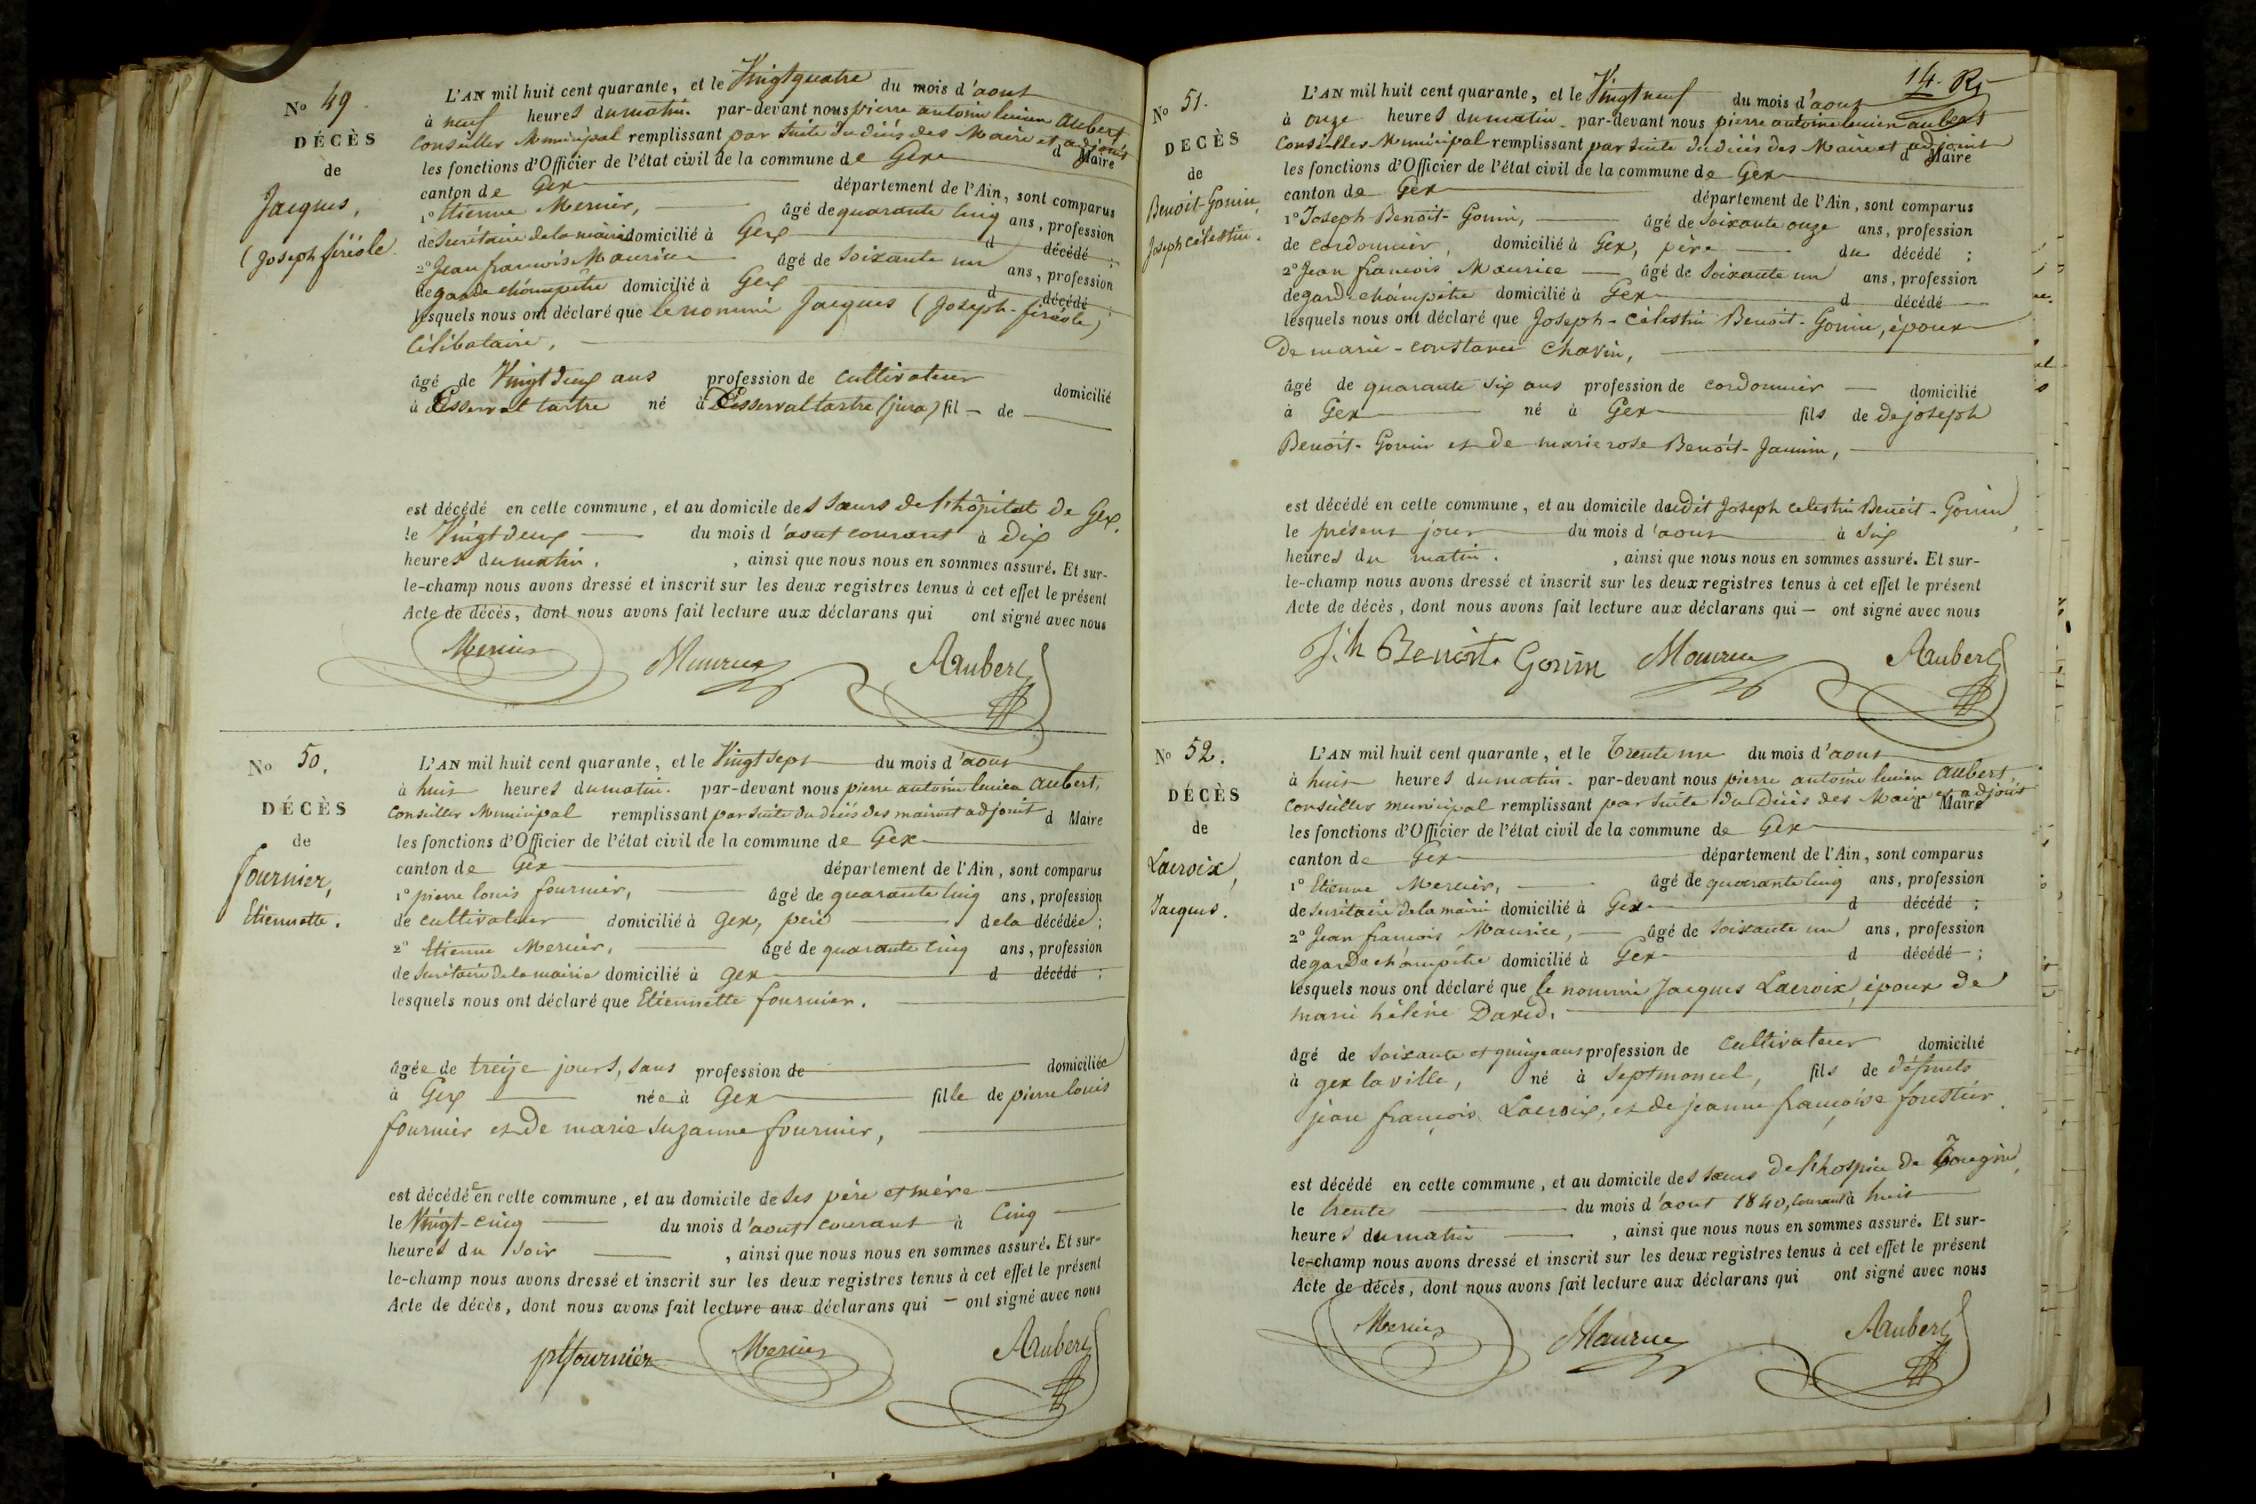 No 49.
DÉCÈS
de
Jacques,
(Joseph féréole.
L'AN mil huit cent quarante, et le Vingt quatre du mois d'aout
à neuf heures du matin. par-devant nous pierre antoine lucien Aubert
Conseiller Municipal remplissant par suite du décès des Maire et adjoint d Maire
les fonctions d'Officier de l'état civil de la commune de Gex
canton de Gex département de l'Ain, sont comparus
1° Etienne Mercier, âgé de quarante cinq ans, profession
de Secrétaire de la mairie domicilié à Gex d décédé ;
2° Jean francois Maurice âgé de soixante un ans, profession
de garde champêtre domicilié à Gex d décédé ;
lesquels nous ont déclaré que le nommé Jacques (Joseph-féréole)
Célibataire,
âgé de Vingt deux ans profession de cultivateur domicilié
à Esserval tartre né à Esserval tartre (jura) fil de
est décédé en cette commune, et au domicile des sœurs de l'hôpital de Gex.
le Vingt deux du mois d'aout courant à dix
heures du matin. , ainsi que nous nous en sommes assuré. Et sur-
le-champ nous avons dressé et inscrit sur les deux registres tenus à cet effet le présent
Acte de décès, dont nous avons fait lecture aux déclarans qui ont signé avec nous
Mercier Maurice AAubert
No 50.
DÉCÈS
de
fournier,
Etiennette.
L'AN mil huit cent quarante, et le Vingt sept du mois d'aout
à huit heures du matin. par-devant nous pierre antoine lucien Aubert,
Conseiller Municipal remplissant par suite du décès des maire et adjoint d Maire
les fonctions d'Officier de l'état civil de la commune de Gex
canton de Gex département de l'Ain, sont comparus
1° pierre louis fournier, âgé de quarante cinq ans, profession
de cultivateur domicilié à Gex, père de la décédée ;
2° Etienne Mercier, âgé de quarante cinq ans, profession
de Secrétaire de la mairie domicilié à Gex d décédé ;
lesquels nous ont déclaré que Etiennette fournier.
âgée de treize jours, sans profession de domiciliée
à Gex née à Gex fille de pierre louis
fournier et de marie Suzanne fournier,
est décédée en cette commune, et au domicile de ses père et mère
le Vingt-cinq du mois d'aout courant à Cinq
heures du soir , ainsi que nous nous en sommes assuré. Et sur-
le-champ nous avons dressé et inscrit sur les deux registres tenus à cet effet le présent
Acte de décès, dont nous avons fait lecture aux déclarans qui – ont signé avec nous
plfournier Mercier AAubert
14. Rs
No 51.
DÉCÈS
de
Benoit-Gonin,
Joseph célestin.
L'AN mil huit cent quarante, et le Vingt neuf du mois d'aout
à onze heures du matin. par-devant nous pierre antoine lucien aubert
Conseiller Municipal remplissant par suite du décès des Maire et adjoint d Maire
les fonctions d'Officier de l'état civil de la commune de Gex
canton de Gex département de l'Ain, sont comparus
1° Joseph Benoit-Gonin, âgé de soixante onze ans, profession
de cordonnier, domicilié à Gex, père du décédé ;
2° Jean francois Maurice âgé de soixante un ans, profession
de garde champêtre domicilié à Gex d décédé
lesquels nous ont déclaré que Joseph-Célestin Benoit-Gonin, époux
De marie-constance Chavin,
âgé de quarante six ans profession de cordonnier domicilié
à Gex né à Gex fils de de joseph
Benoit-Gonin et de marie rose Benoit-Jannin,
est décédé en cette commune, et au domicile dudit Joseph celestin Benoit-Gonin,
le présent jour du mois d'aout à six
heures du matin. , ainsi que nous nous en sommes assuré. Et sur-
le-champ nous avons dressé et inscrit sur les deux registres tenus à cet effet le présent
Acte de décès, dont nous avons fait lecture aux déclarans qui – ont signé avec nous
J.h Benoit Gonin Maurice AAubert
No 52.
DÉCÈS
de
Lacroix,
Jacques.
L'AN mil huit cent quarante, et le Trente un du mois d'aout
à huit heures du matin. par-devant nous pierre antoine lucien Aubert,
Conseiller municipal remplissant par suite du Décès des Maire et adjoint d Maire
les fonctions d'Officier de l'état civil de la commune de Gex
canton de Gex département de l'Ain, sont comparus
1° Etienne Mercier, âgé de quarante cinq ans, profession
de Secrétaire de la mairie domicilié à Gex d décédé ;
2° Jean francois Maurice, âgé de soixante un ans, profession
de garde champêtre domicilié à Gex d décédé ;
lesquels nous ont déclaré que le nommé Jacques Lacroix, époux de
marie hélène David.
âgé de soixante et quinze ans profession de Cultivateur domicilié
à gex la ville, né à Septmoncel, fils de défunts
jean françois Lacroix, et de jeanne françoise forestier.
est décédé en cette commune, et au domicile des sœurs de l'hospice de Tougin,
le trente du mois d'aout 1840, courant à huit
heures du matin , ainsi que nous nous en sommes assuré. Et sur-
le-champ nous avons dressé et inscrit sur les deux registres tenus à cet effet le présent
Acte de décès, dont nous avons fait lecture aux déclarans qui ont signé avec nous
Mercier Maurice AAubert